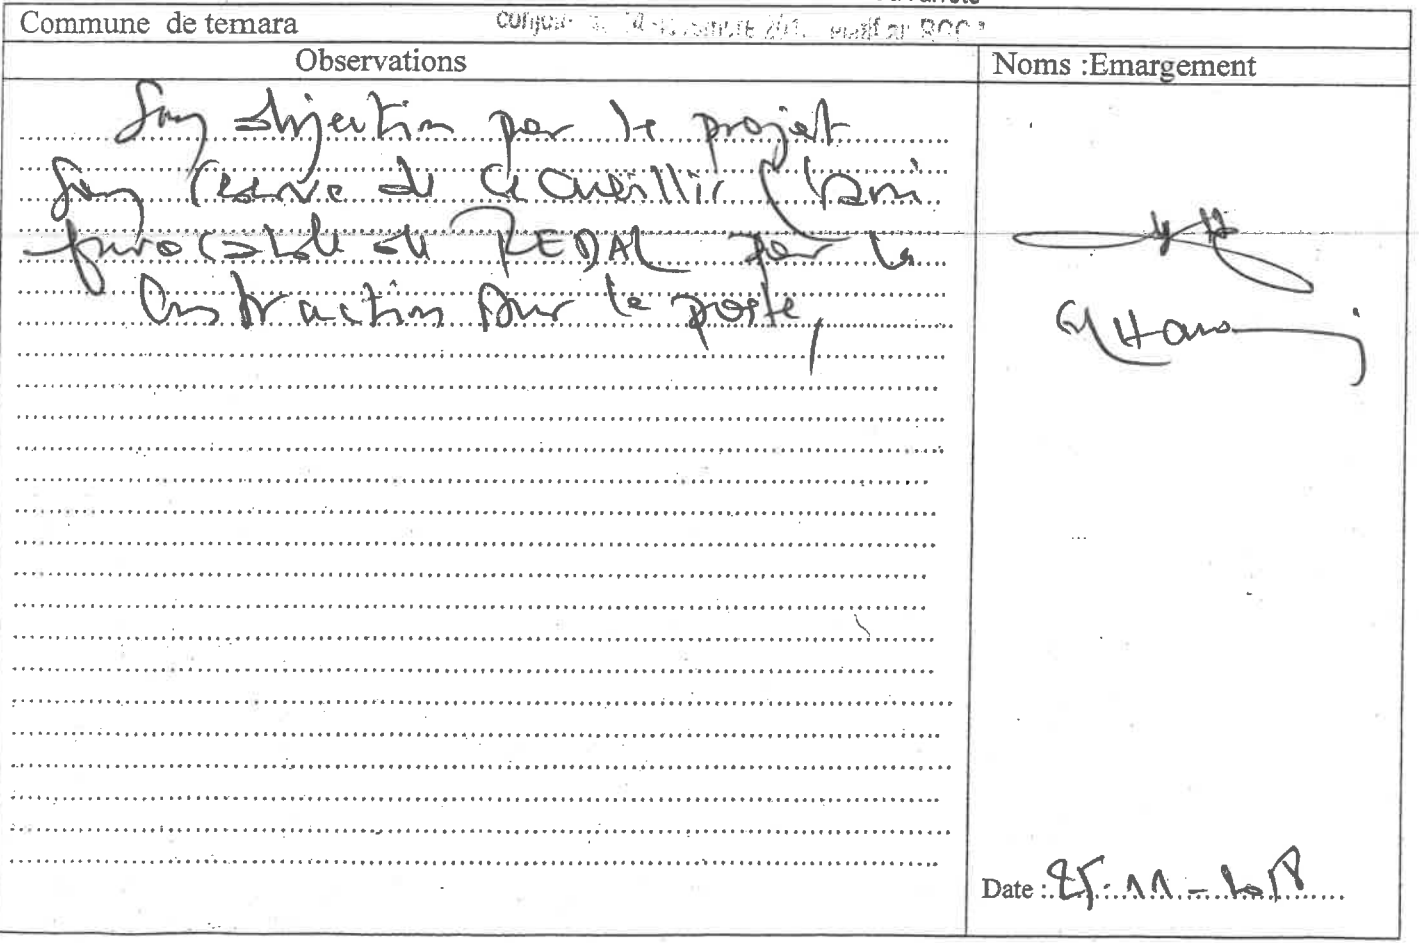 Commune de temara
Observations
Noms :Emargement
Sans objection pour le projet
Sous réserve de recueillir l'avis
favorable de REDAL pour la
Construction sur le poste,
Date : 25-11-2018